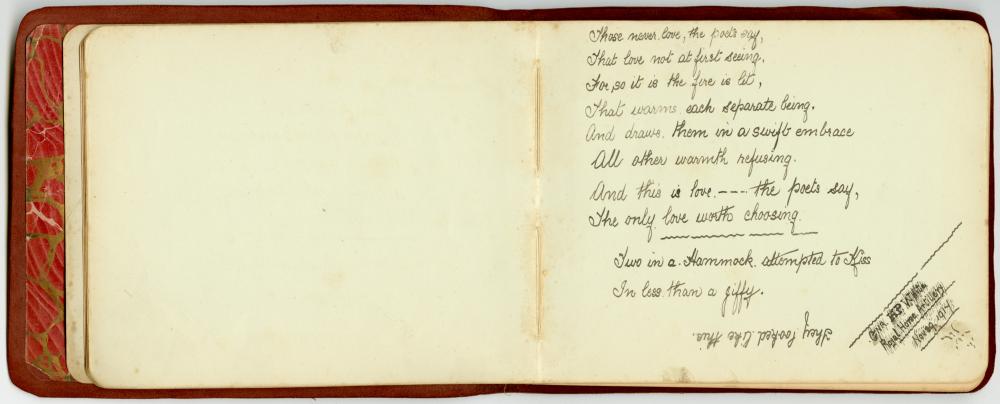 Those never love, the poets say,
That love not at first seeing.
For, so it is the fire is lit,
That warms each separate being.
And draws them in a swift embrace
All other warmth refusing.
And this is love. ---- the poets say,
The only love worth choosing.
Two in a Hammock attempted to Kiss
In less than a giffy.
They looked like this.
Royal Horse Artillery
1914